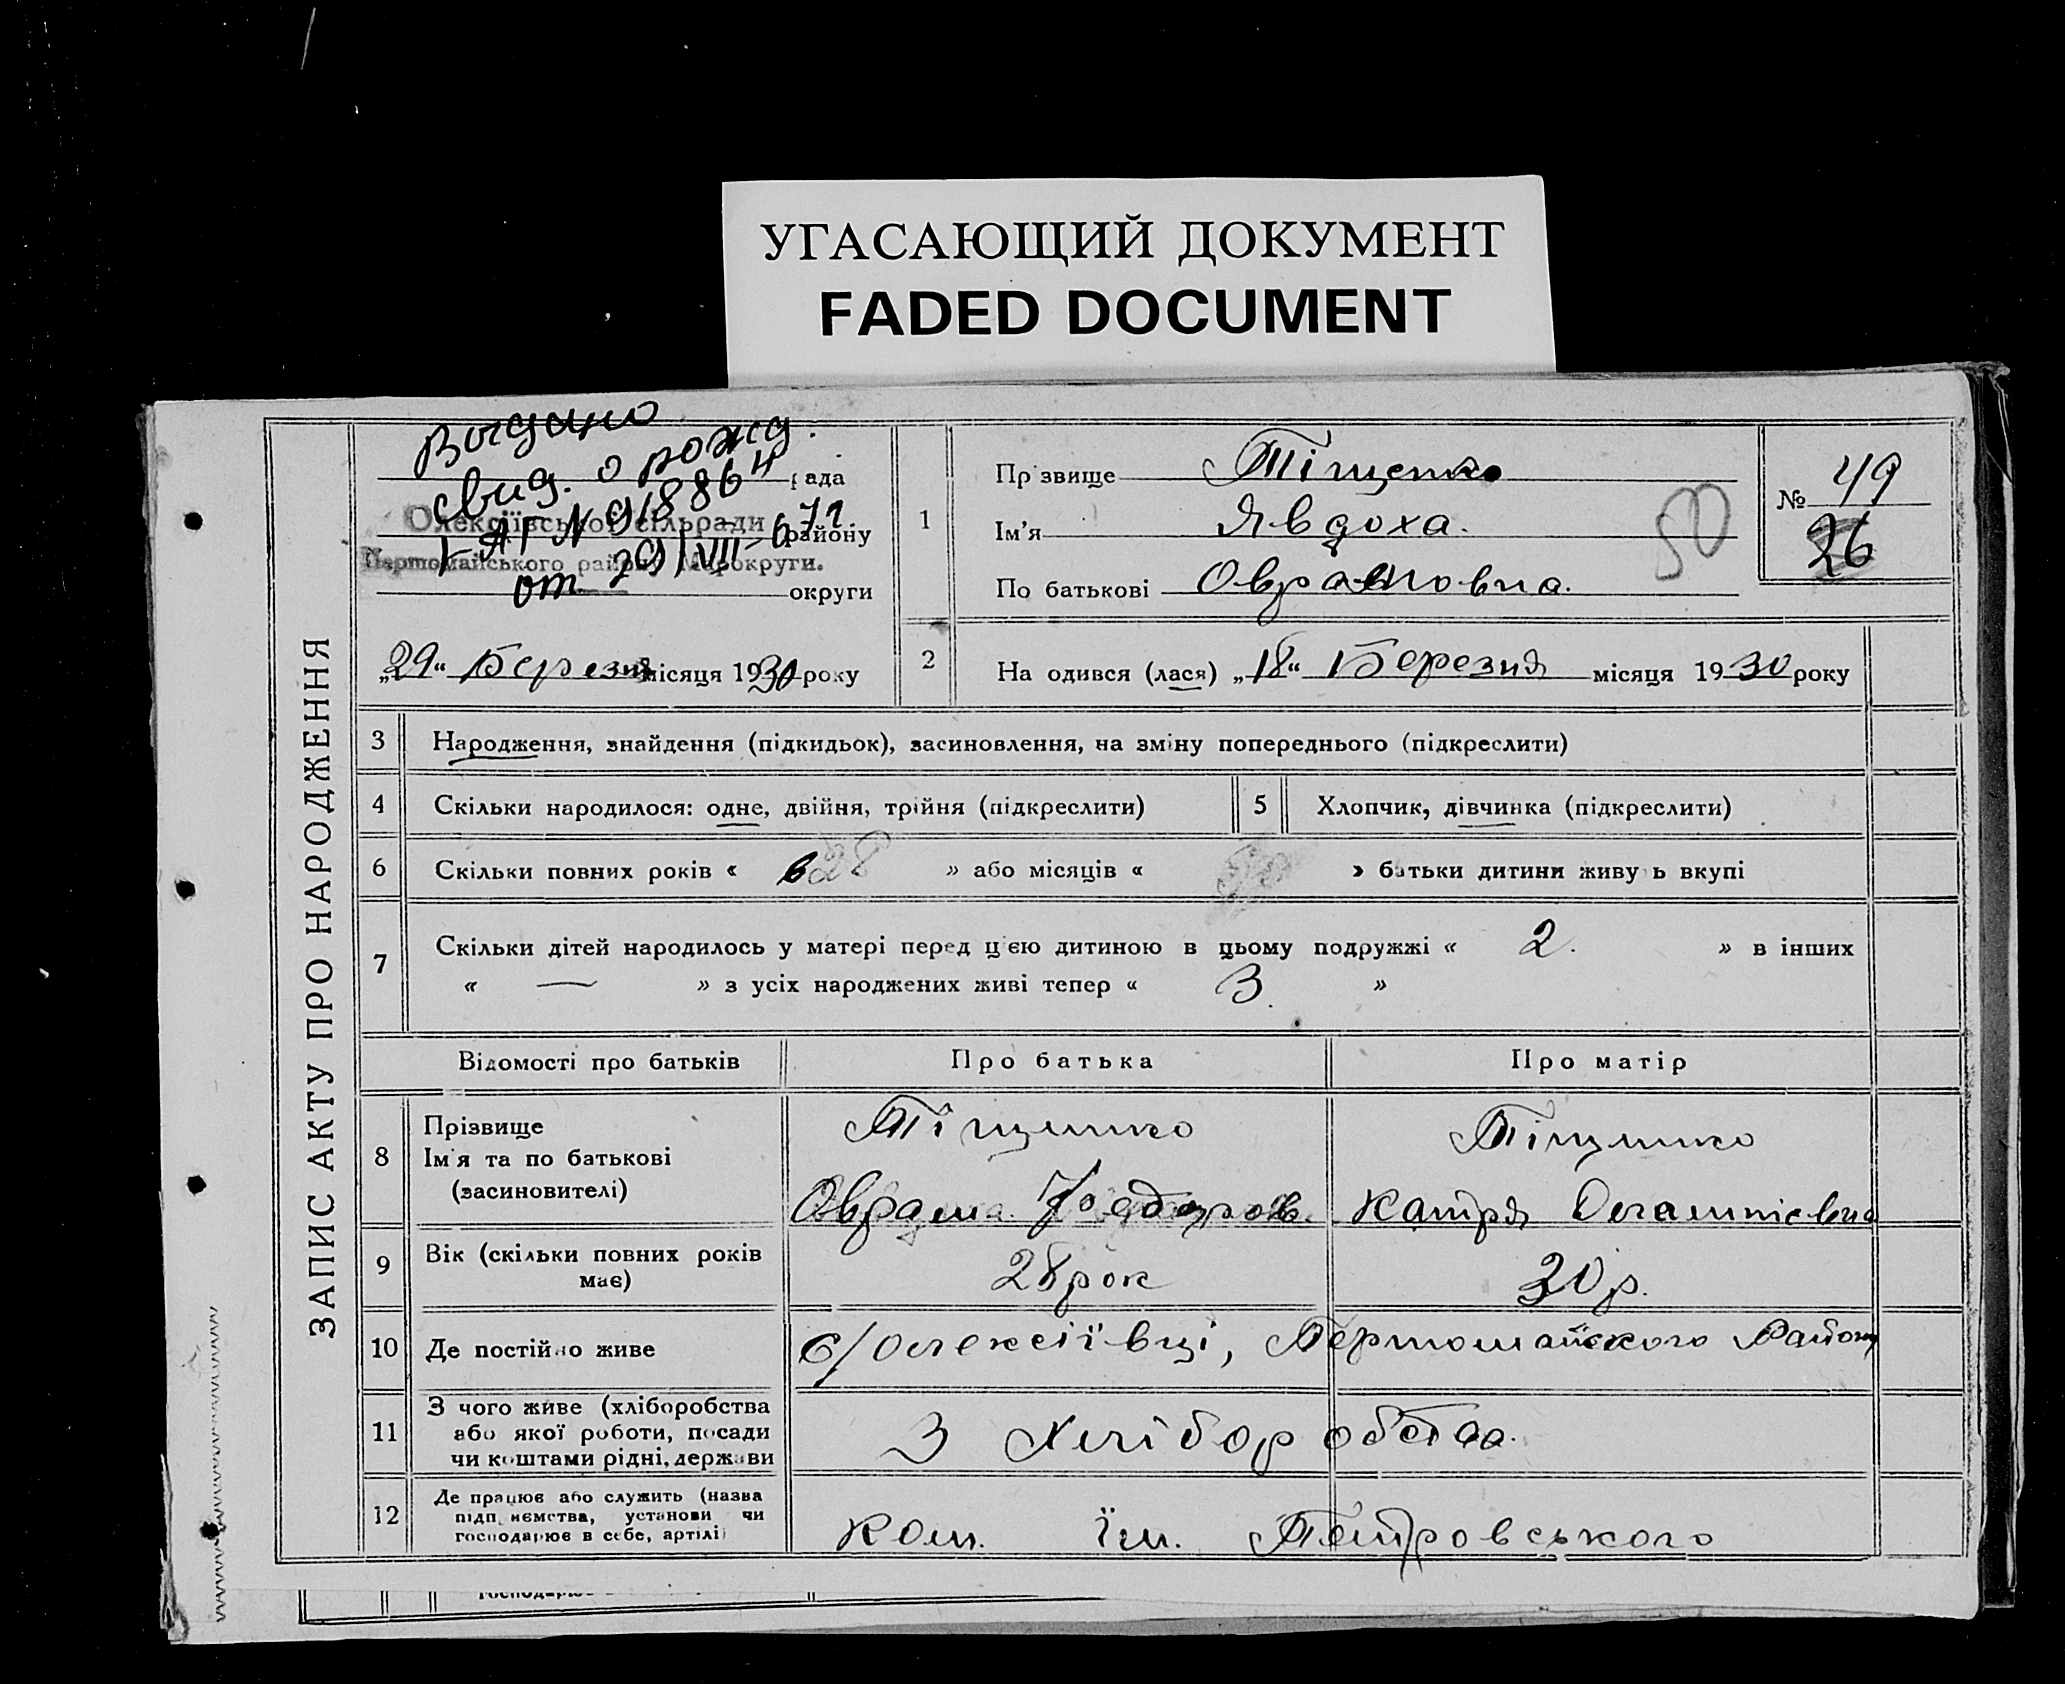 УГАСАЮЩИЙ ДОКУМЕНТ
FADED DOCUMENT
ЗАПИС АКТУ ПРО НАРОДЖЕННЯ
Выдано
свид. о рожд.
рада
Олексіївської сільради
району
Первомайського району Марокруги.
от 29/VII-71
округи
„29“ Березня місяця 1930 року
1
Прізвище Тіщенко
Ім'я Явдоха.
По батькові Оврамовна.
50
№ 49
26
2
На одився (лася) „18“ Березня місяця 1930 року
3 Народження, знайдення (підкидьок), засиновлення, на зміну попереднього (підкреслити)
4 Скільки народилося: одне, двійня, трійня (підкреслити)
5 Хлопчик, дівчинка (підкреслити)
6 Скільки повних років « 6 28 » або місяців « » батьки дитини живу ь вкупі
7 Скільки дітей народилось у матері перед цією дитиною в цьому подружжі « 2. » в інших
« — » з усіх народжених живі тепер « 3. »
Відомості про батьків Про батька Про матір
8
Прізвище
Ім'я та по батькові
(засиновителі)
Тіщенко
Оврама Федоров.
Тіщенко
Катря
9
Вік (скільки повних років
має)
28 рок
30 р.
10 Де постійно живе
С/Олексіївці, Первомайского Району
11
З чого живе (хліборобства
або якої роботи, посади
чи коштами рідні, держави
З Хліборобства.
12
Де працює або служить (назва
підп иємства, установи чи
господарює в себе, артілі)
Ком. їм. Петровського